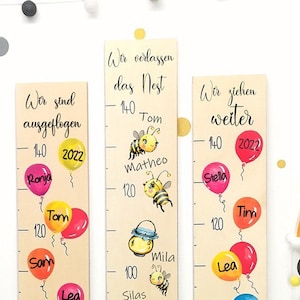 Wir sind
ausgeflogen
140
2022
Ronja
120
Tom
Sam
Lea
Wir verlassen
das Nest
140
Tom
Matheo
120
Mila
100
Silas
Wir ziehen
weiter
140
2022
Stella
120
Tim
Lea